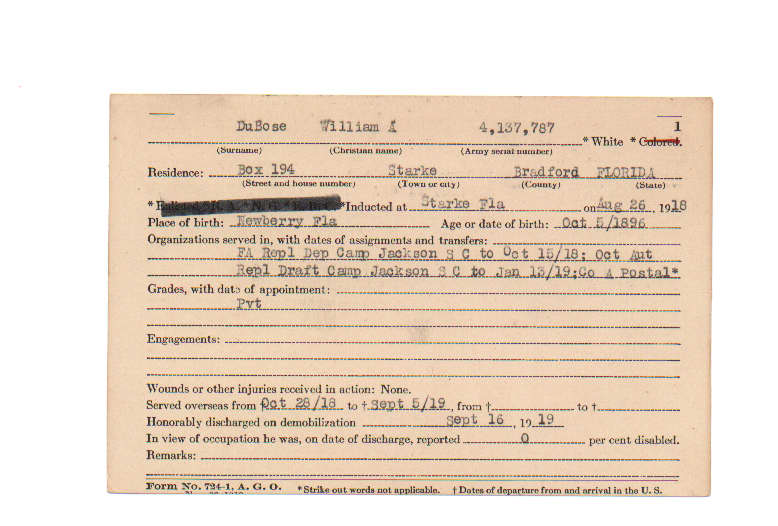 DuBose William A 4,137,787 1
* White * Colored.
(Surname) (Christian name) (Army serial number)
Residence: Box 194 Starke Bradford FLORIDA
(Street and house number) (Town or city) (County) (State)
*Inducted at Starke Fla on Aug 26, 1918
Place of birth: Newberry Fla Age or date of birth: Oct 5/1896
Organizations served in, with dates of assignments and transfers:
FA Repl Dep Camp Jackson S C to Oct 15/18; Oct Aut
Repl Draft Camp Jackson S C to Jan 13/19;Co A Postal*
Grades, with date of appointment:
Pvt
Engagements:
Wounds or other injuries received in action: None.
Served overseas from † Oct 28/18 to † Sept 5/19, from † to †
Honorably discharged on demobilization Sept 16, 19 19
In view of occupation he was, on date of discharge, reported 0 per cent disabled.
Remarks:
Form No. 724-1, A. G. O. *Strike out words not applicable. † Dates of departure from and arrival in the U. S.